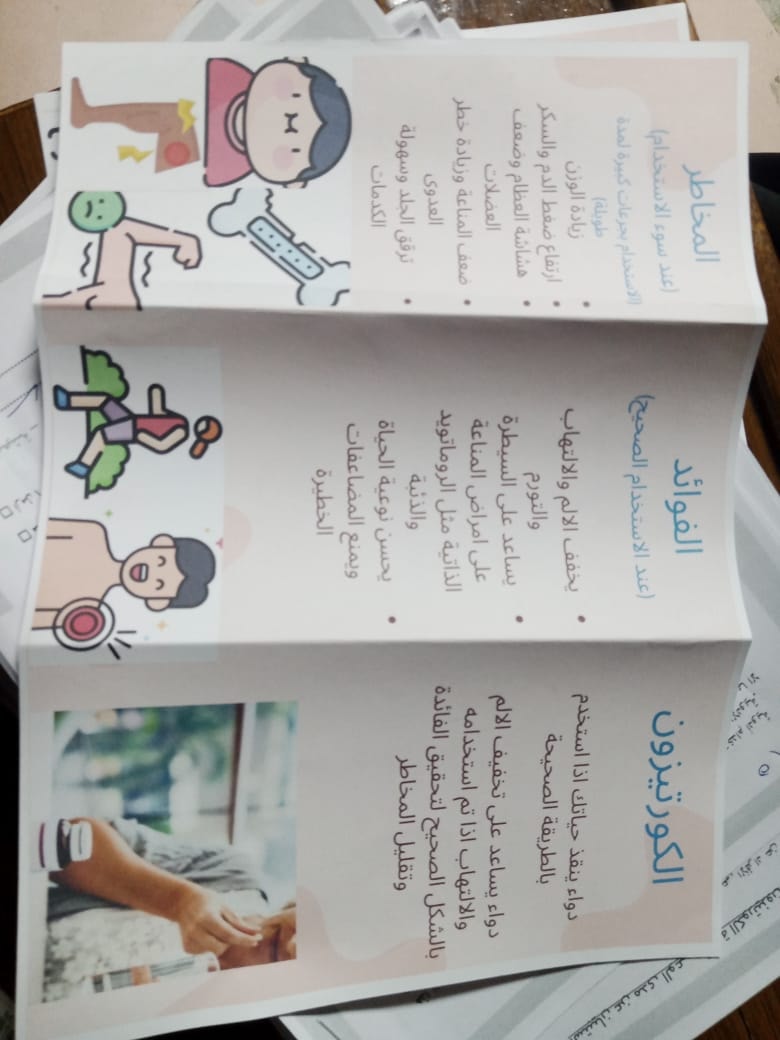 الكورتيزون
دواء ينقذ حياتك اذا استخدم
بالطريقة الصحيحة
دواء يساعد على تخفيف الالم
والالتهاب اذا تم استخدامه
بالشكل الصحيح لتحقيق الفائدة
وتقليل المخاطر
الفوائد
(عند الاستخدام الصحيح)
• يخفف الالم والالتهاب
والتورم
• يساعد على السيطرة
على امراض المناعة
الذاتية مثل الروماتويد
والذئبة
• يحسن نوعية الحياة
ويمنع المضاعفات
الخطيرة
المخاطر
(عند سوء الاستخدام)
(الاستخدام بجرعات كبيرة لمدة
طويلة)
• زيادة الوزن
• ارتفاع ضغط الدم والسكر
• هشاشة العظام وضعف
العضلات
• ضعف المناعة وزيادة خطر
العدوى
• ترقق الجلد وسهولة
الكدمات